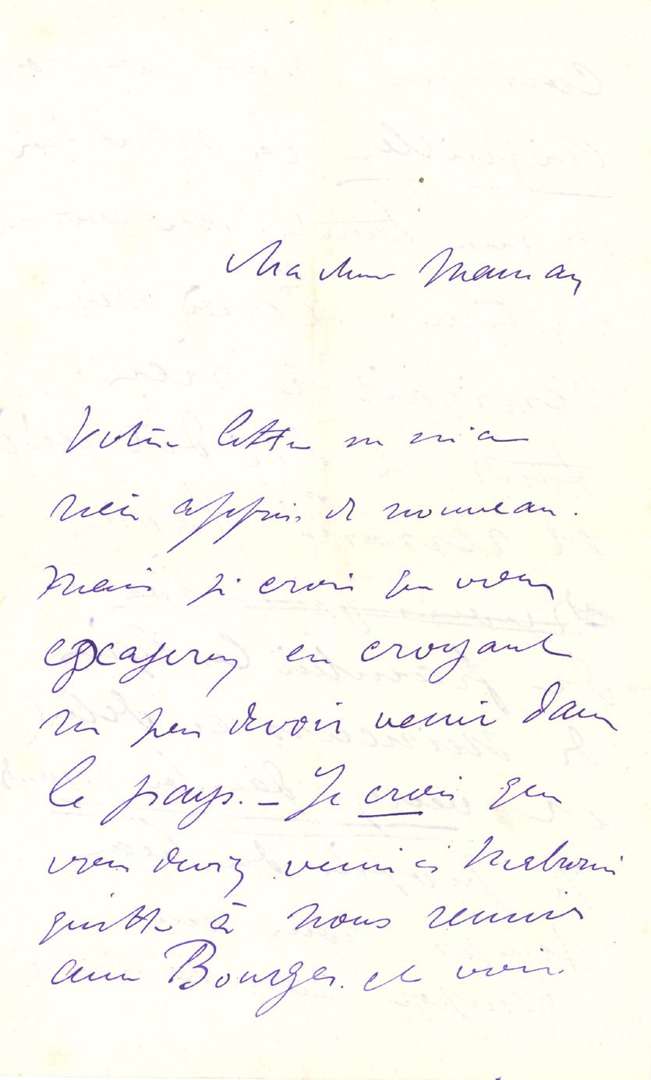 Ma chère Maman
Votre lettre ne m'a
rien appris de nouveau.
Mais je crois que vous
exagérez en croyant
ne pas devoir venir dans
le pays. – Je crois que
vous devez venir à
quitte à nous réunir
aux Bourges. et voir